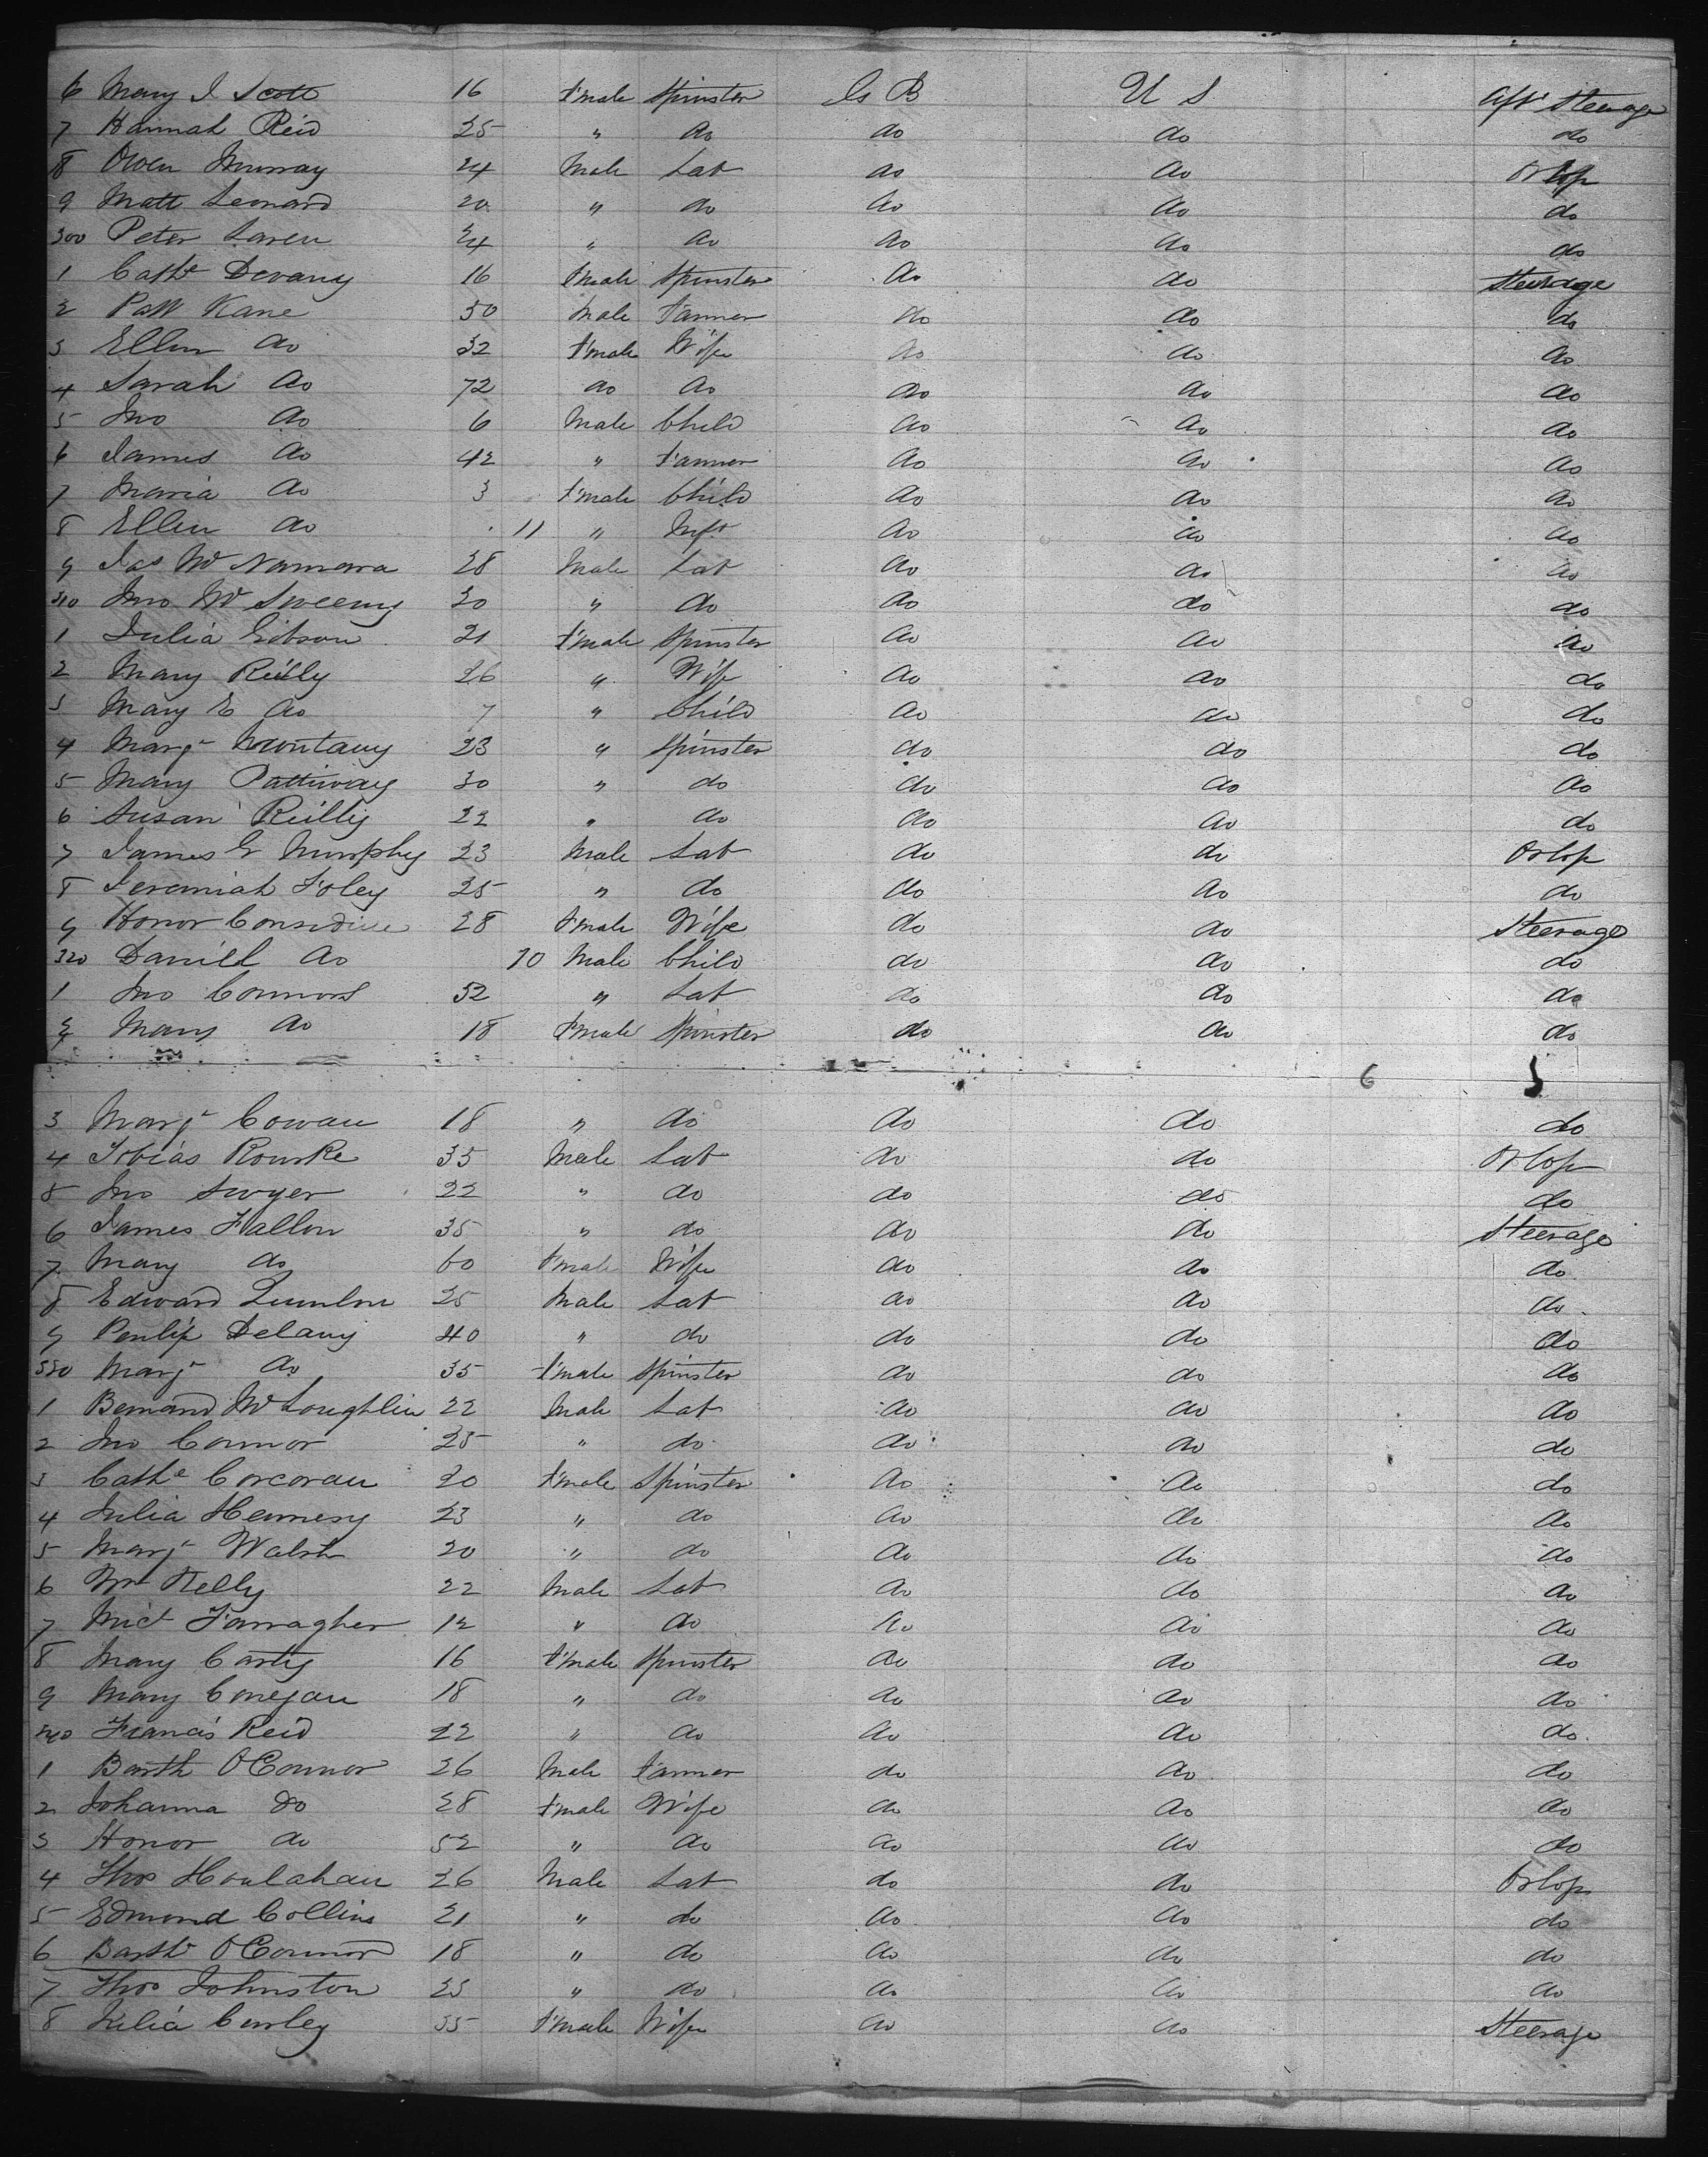 6 Mary J Scott 16 F'male Spinster G B U S Aft Steerage
7 Hannah Reid 25 " do do do do
8 Owen Murray 24 Male Lab do do Orlop
9 Matt Leonard 20 " do do do do
300 Peter Laren 24 " do do do do
1 Cathe Devany 16 F'male Spinster do do Steerage
2 Patt Kane 50 Male Farmer do do do
3 Ellen do 32 F'male Wife do do do
4 Sarah do 72 do do do do do
5 Jno do 6 Male Child do do do
6 James do 42 " Farmer do do do
7 Maria do 3 F'male Child do do do
8 Ellen do 11 " Inft do do do
9 Jas Mc Namara 28 Male Lab do do do
310 Jno Mc Sweeny 30 " do do do do
1 Julia Gibson 21 F'male Spinster do do do
2 Mary Reilly 26 " Wife do do do
3 Mary E do 7 " Child do do do
4 Margt 23 " Spinster do do do
5 Mary 30 " do do do do
6 Susan Reilly 22 " do do do do
7 James G Murphy 23 Male Lab do do Orlop
8 Jeremiah Foley 25 " do do do do
9 Honor Considine 28 F'male Wife do do Steerage
320 Daniel do 10 Male Child do do do
1 Jno Connors 52 " Lab do do do
2 Mary do 18 F'male Spinster do do do
6
3 Margt Cowan 18 " do do do do
4 Tobias Rourke 35 Male Lab do do Orlop
5 Jno Swyer 22 " do do do do
6 James Fallon 35 " do do do Steerage
7 Mary do 60 F'male Wife do do do
8 Edward Quinlon 25 Male Lab do do do
9 Penlip Delany 40 " do do do do
330 Margt do 35 F'male Spinster do do do
1 Bernard McLoughlin 22 Male Lab do do do
2 Jno Connor 25 " do do do do
3 Cathe Corcoran 20 F'male Spinster do do do
4 Julia Hennesy 23 " do do do do
5 Margt Walsh 20 " do do do do
6 Wm Kelly 22 Male Lab do do do
7 Micl Farragher 12 " do do do do
8 Mary Carty 16 F'male Spinster do do do
9 Mary Conegan 18 " do do do do
340 Francis Reid 22 " do do do do
1 Barth O'Connor 26 Male Farmer do do do
2 Johanna do 28 F'male Wife do do do
3 Honor do 52 " do do do do
4 Thos Houlahan 26 Male Lab do do Orlop
5 Edmond Collins 21 " do do do do
6 Barth O'Connor 18 " do do do do
7 Thos Johnston 25 " do do do do
8 Kelia Curley 35 F'male Wife do do Steerage